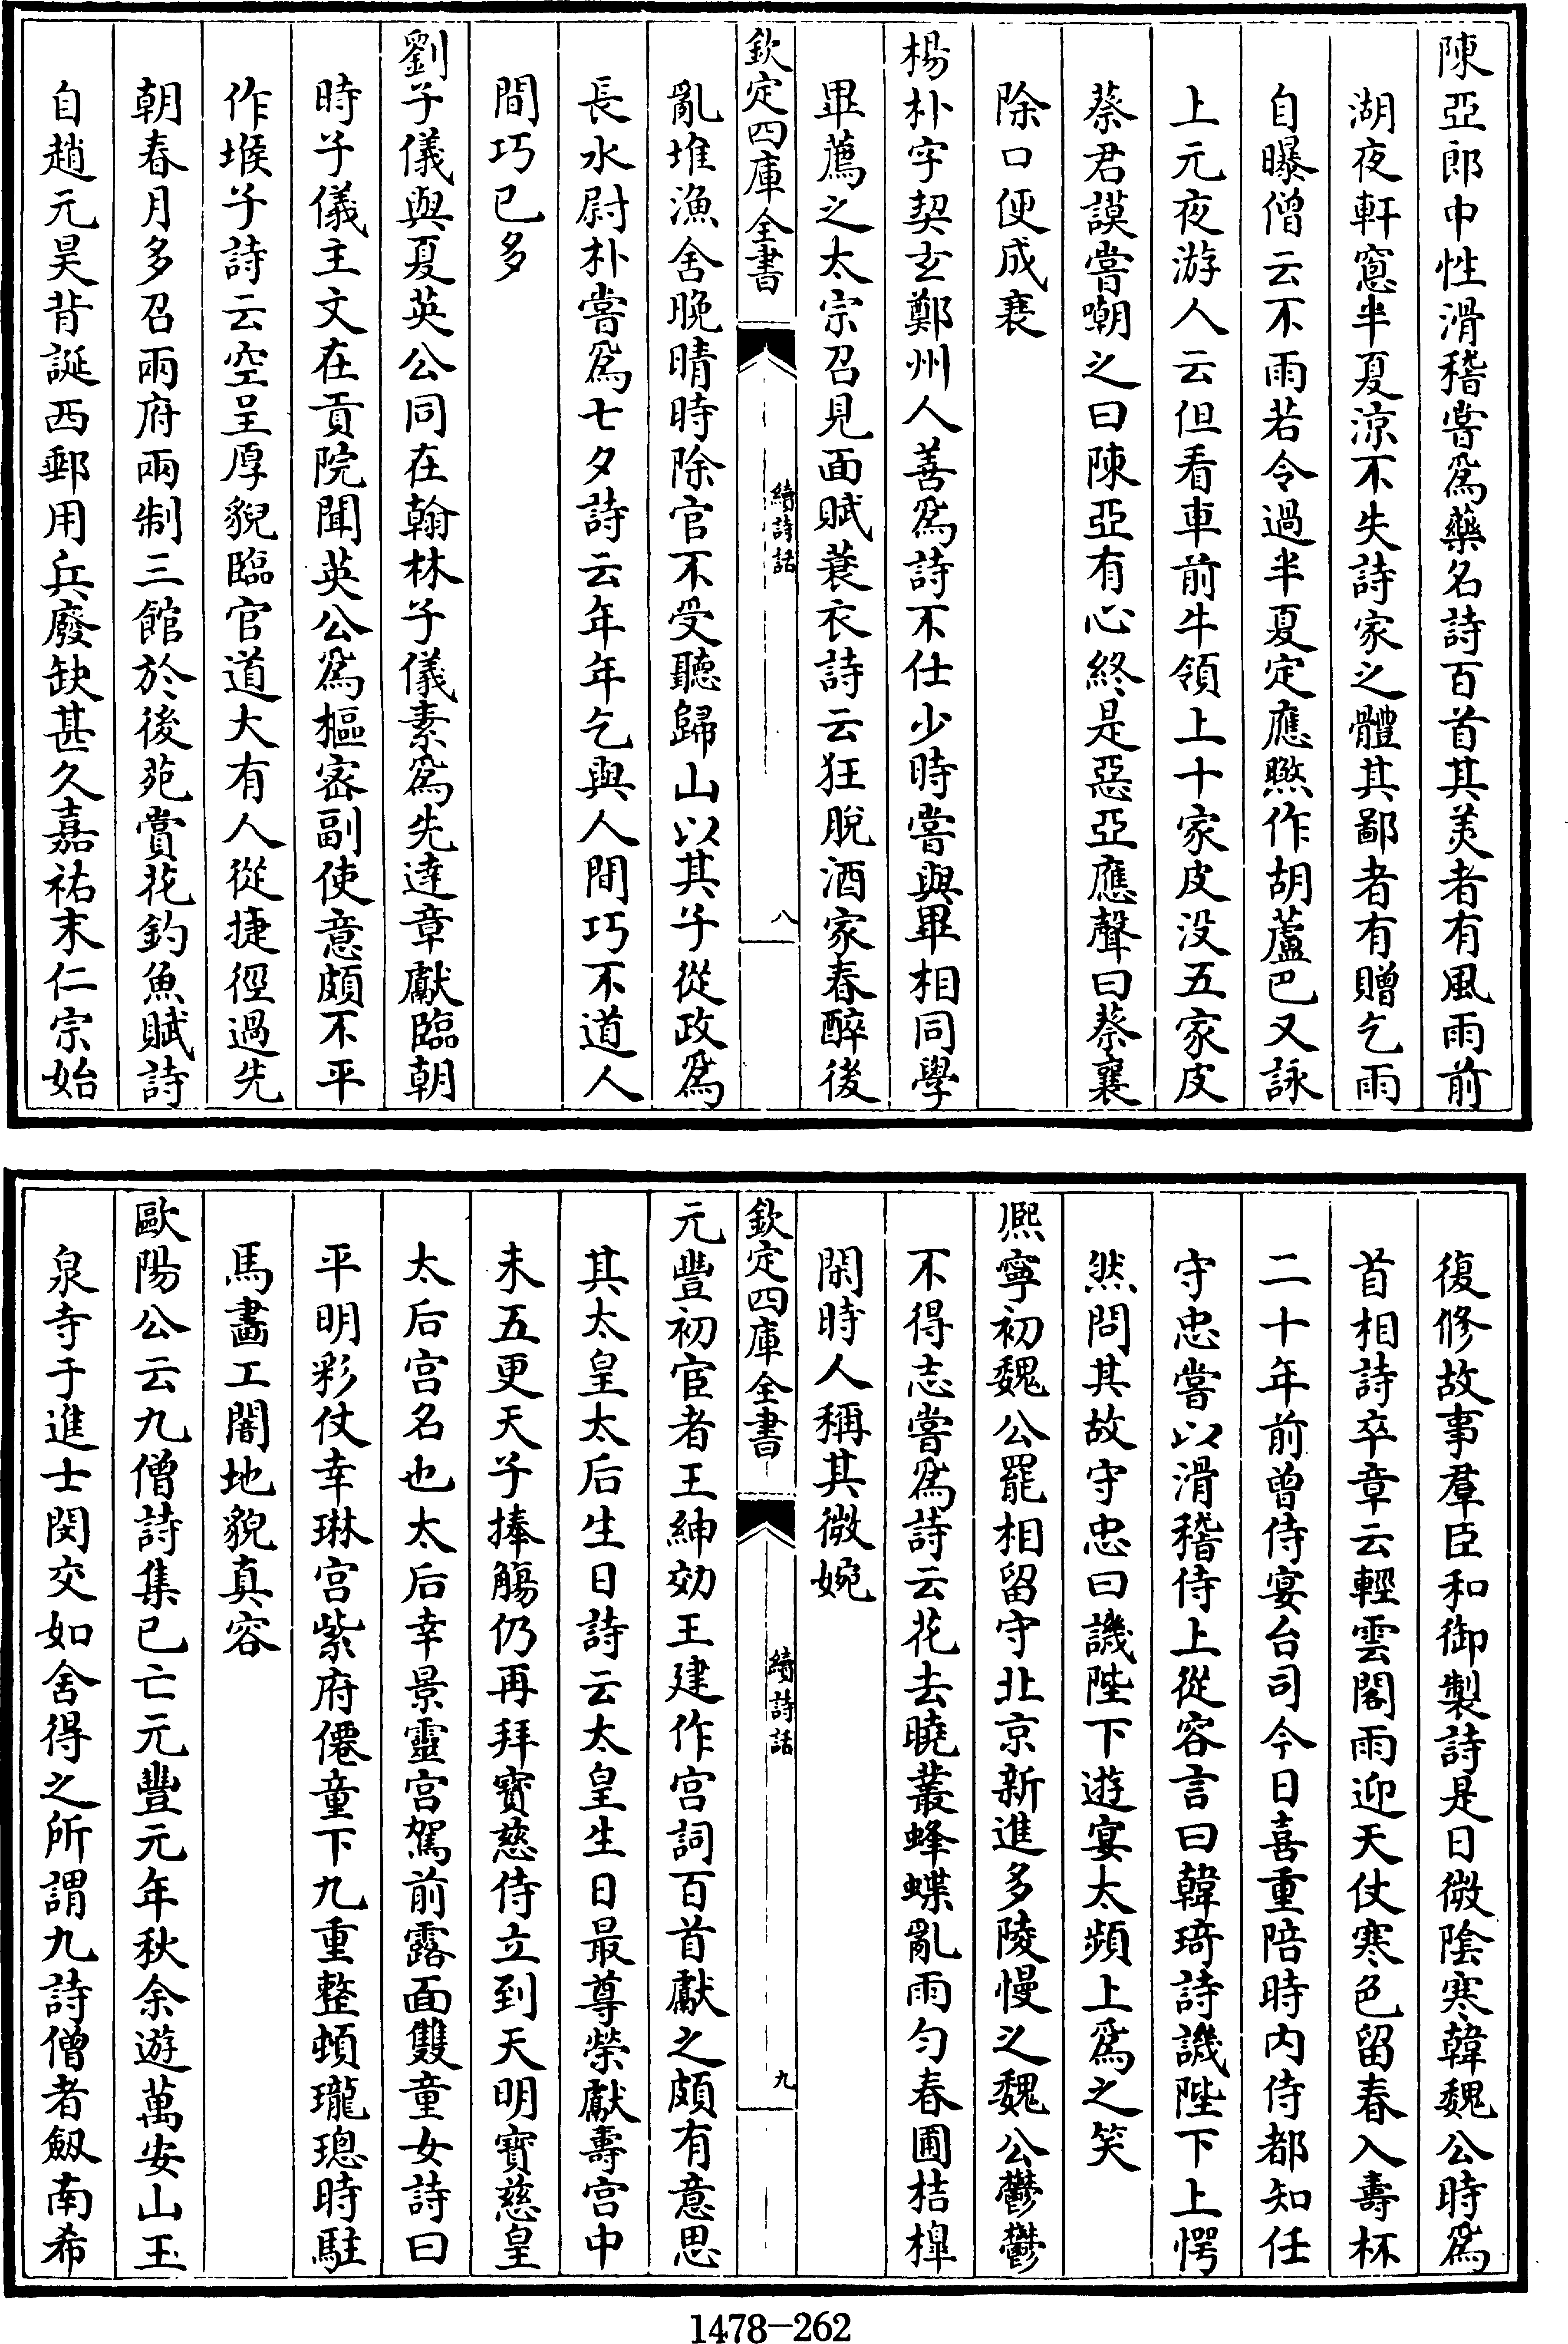 陳亞郎中性滑稽嘗爲藥名詩百首其美者有風雨前
湖夜軒窓半夏涼不失詩家之體其鄙者有贈乞雨
自曝僧云不雨若令過半夏定應㬠作胡蘆巴又詠
上元夜游人云但看車前牛領上十家皮没五家皮
蔡君謨嘗嘲之曰陳亞有心終是惡亞應聲曰蔡襄
除口便成衰
楊朴字契𤣥鄭州人善爲詩不仕少時嘗與畢相同學
畢薦之太宗召見面賦蓑衣詩云狂脫酒家春醉後
欽定四庫全書
續詩話
八
亂堆漁舍晚晴時除官不受聽歸山以其子從政爲
長水尉朴嘗爲七夕詩云年年乞與人間巧不道人
間巧已多
劉子儀與夏英公同在翰林子儀素爲先達章獻臨朝
時子儀主文在貢院聞英公爲樞密副使意頗不平
作堠子詩云空呈厚貌臨官道大有人從捷徑過先
朝春月多召兩府兩制三館於後苑賞花釣魚賦詩
自趙元昊背誕西郵用兵廢缺甚久嘉祐末仁宗始
復修故事羣臣和御製詩是日微陰寒韓魏公時爲
首相詩卒章云輕雲閣雨迎天仗寒色留春入壽杯
二十年前曾侍宴台司今日喜重陪時内侍都知任
守忠嘗以滑稽侍上從容言曰韓琦詩譏陛下上愕
然問其故守忠曰譏陛下遊宴太頻上爲之笑
熈寧初魏公罷相留守北京新進多陵慢之魏公鬱鬱
不得志嘗爲詩云花去曉叢蜂蝶亂雨匀春圃桔橰
閑時人稱其微婉
欽定四庫全書
續詩話
九
元豐初宦者王紳効王建作宫詞百首獻之頗有意思
其太皇太后生日詩云太皇生日最尊榮獻壽宫中
未五更天子捧觴仍再拜寳慈侍立到天明寳慈皇
太后宫名也太后幸景靈宫駕前露面雙童女詩曰
平明彩仗幸琳宫紫府僊童下九重整頓瓏璁時駐
馬畵工闇地貌真容
歐陽公云九僧詩集已亡元豐元年秋余遊萬安山玉
泉寺于進士閔交如舍得之所謂九詩僧者劔南希
1478-262